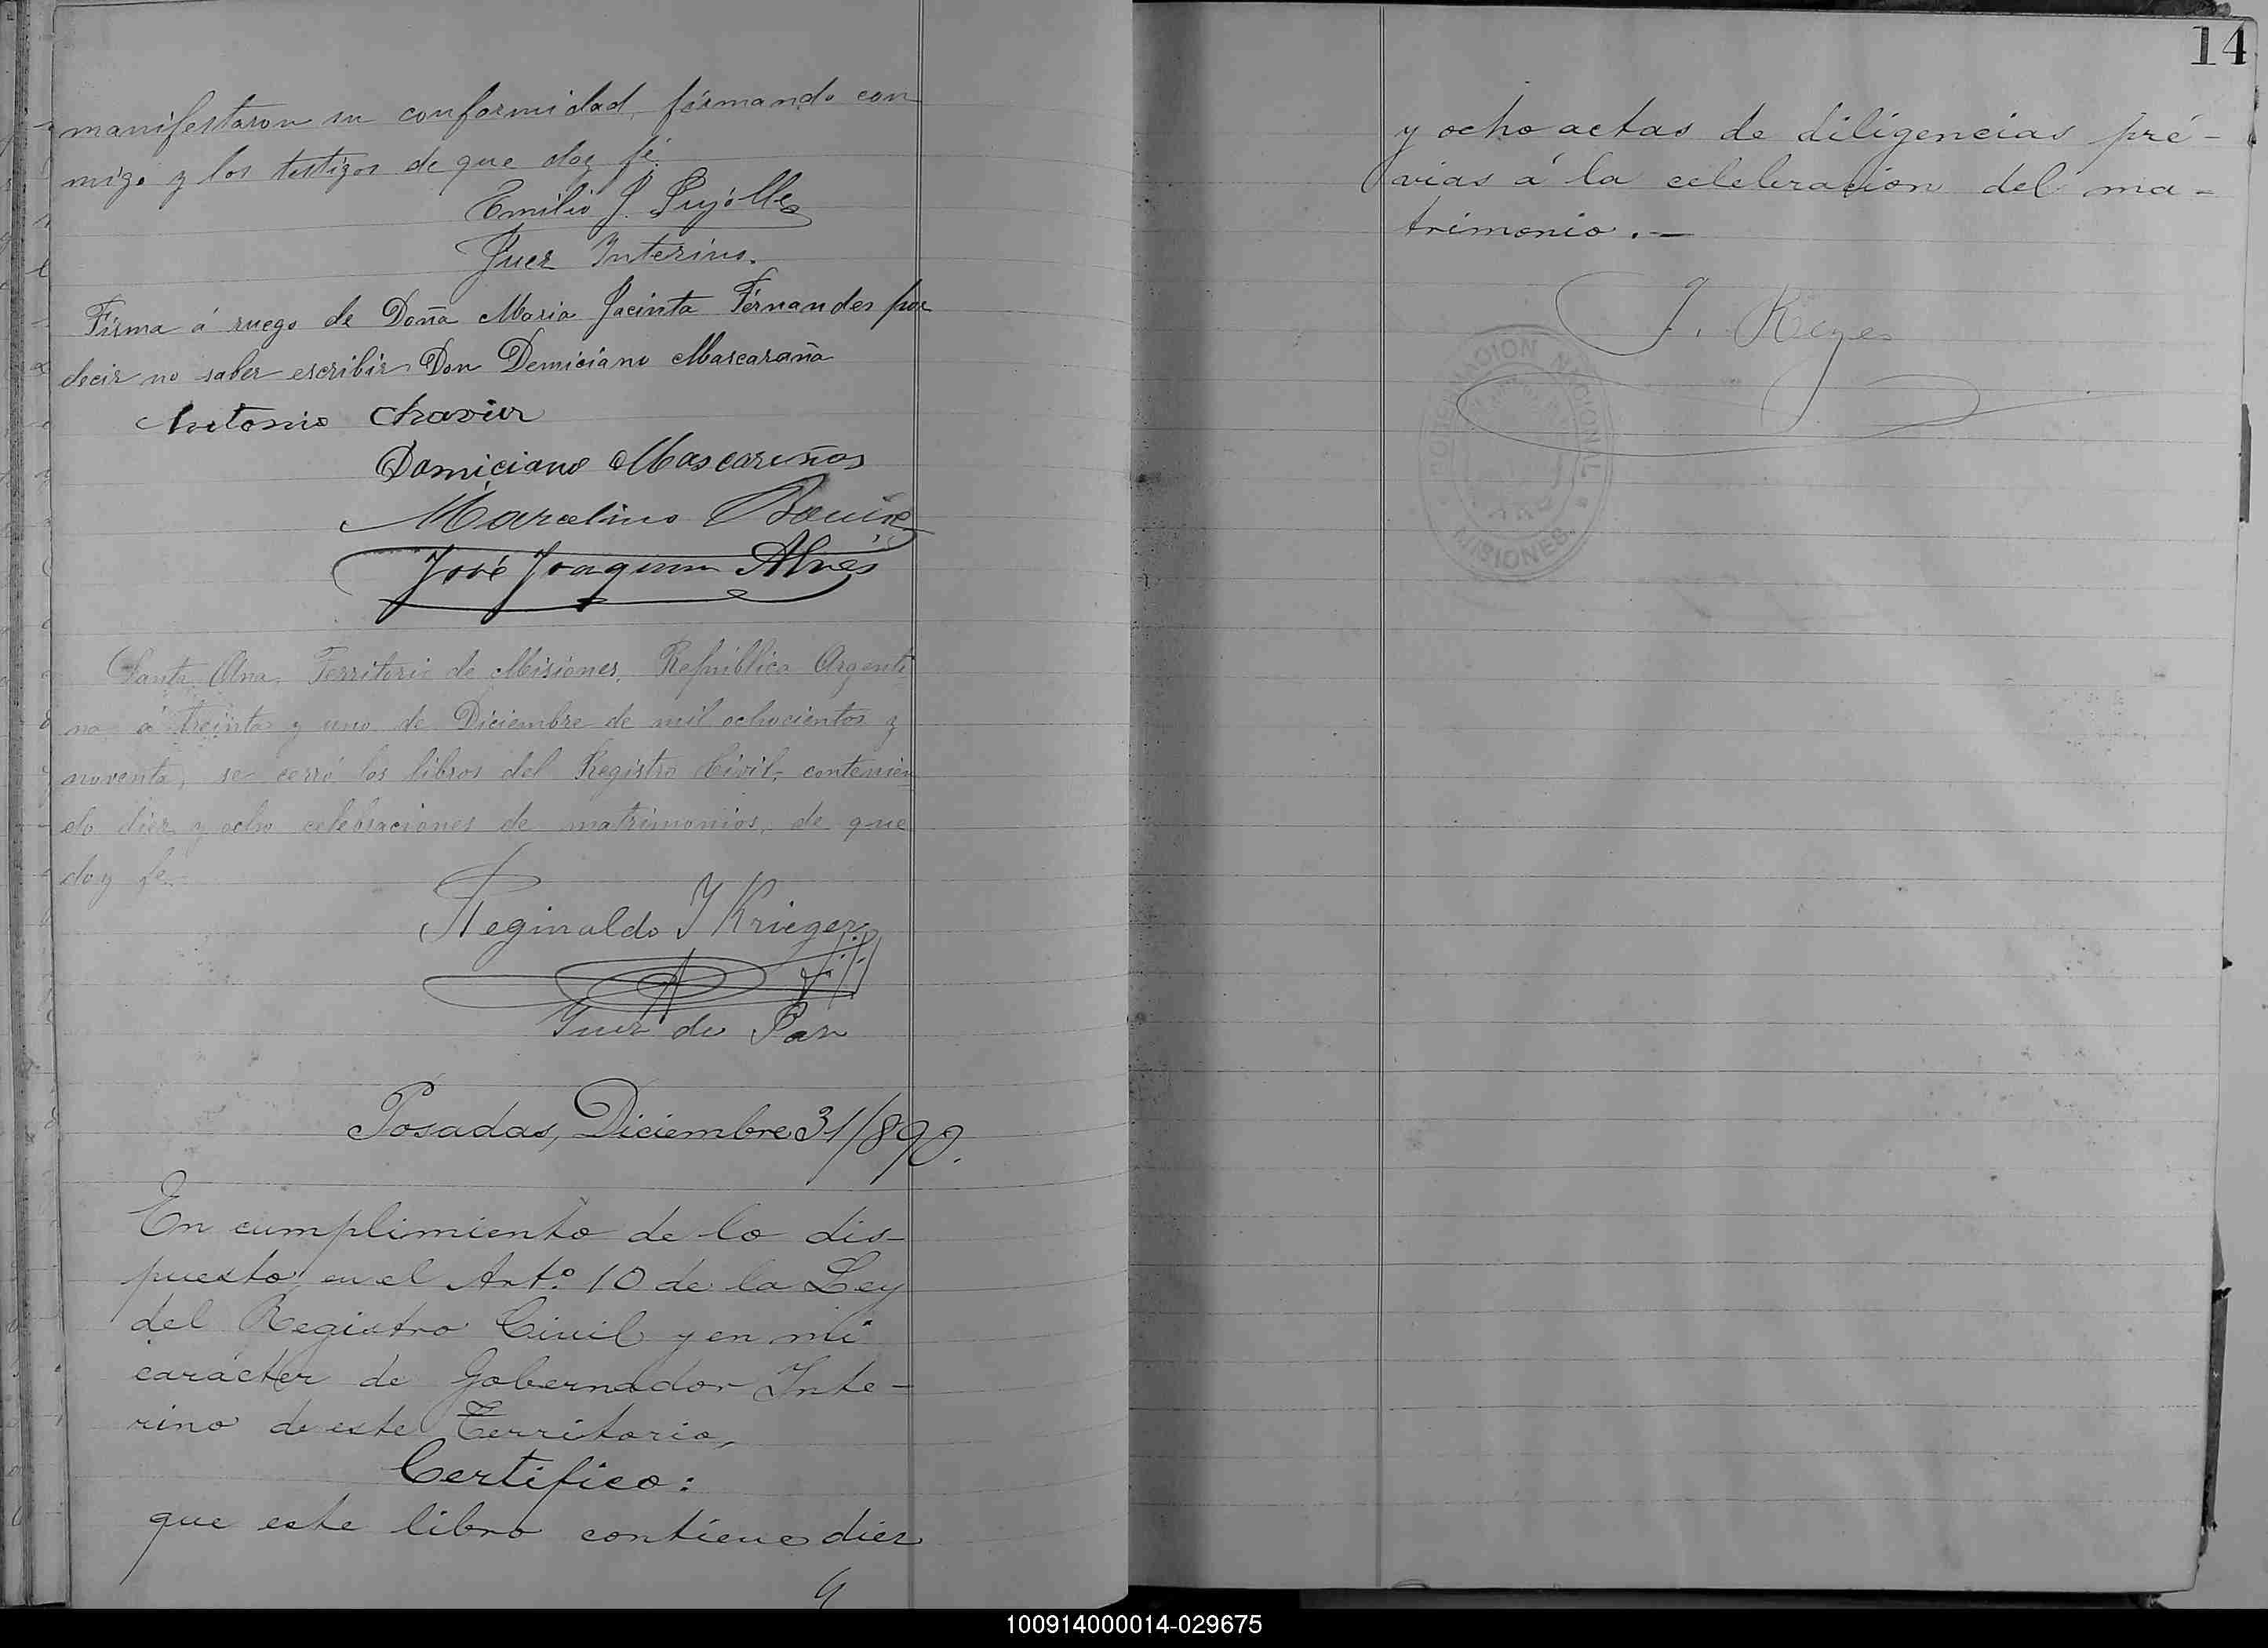 manifestaron su conformidad, firmando con
migo y los testigos de que doy fé.
Emilio J. Pujólle
Juez Interino.
Firma á ruego de Doña Maria Jacinta Fernandes por
decir no saber escribir Don Demiciano Mascaraña
Antonio Chavier
Domiciano Mascareñas
Marcelino Bouix
José Joaquim Alves
Santa Ana, Territorio de Misiones, República Argenti
na á treinta y uno de Diciembre de mil ochocientos y
noventa, se cerró los libros del Registro Civil, contenien
do diez y ocho celebraciones de matrimonios, de que
doy fe.
Reginaldo J Krieger
Juez de Paz
Posadas, Diciembre 31/890.
En cumplimiento de lo dis-
puesto en el Art.º 10 de la Ley
del Registro Civil y en mi
carácter de Gobernador Inte-
rino de este Territorio,
Certifico:
que este libro contiene diez
y
14
y ocho actas de diligencias pré-
vias á la celebracion del ma-
trimonio.—
J. Reyes
GOBERNACION NACIONAL
MISIONES
100914000014-029675